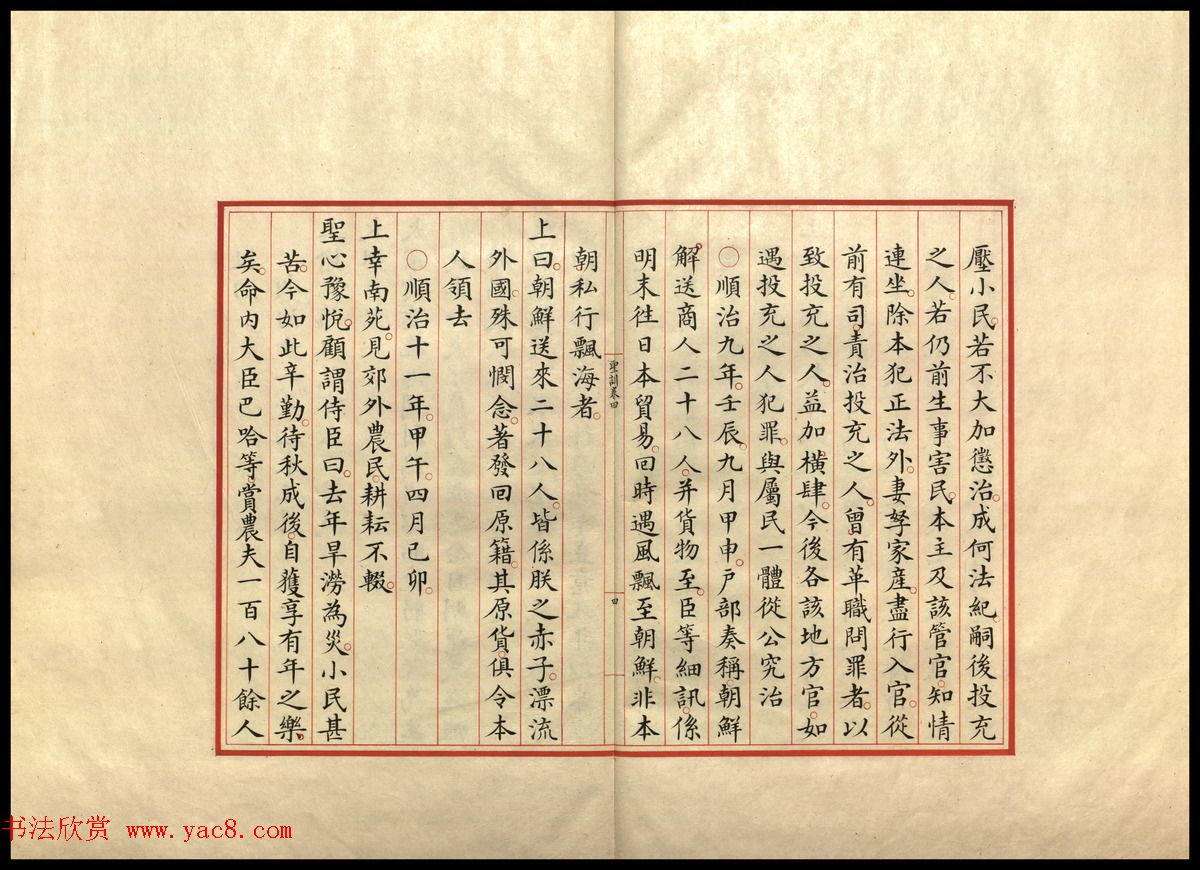 壓小民。若不大加懲治。成何法紀。嗣後投充
之人。若仍前生事害民。本主及該管官。知情
連坐。除本犯正法外。妻孥家產。盡行入官。從
前有司。責治投充之人。曾有革職問罪者。以
致投充之人。益加橫肆。今後各該地方官。如
遇投充之人犯罪。與屬民一體從公究治
○順治九年。壬辰。九月甲申。戶部奏稱。朝鮮
解送商人二十八人。并貨物至。臣等細訊。係
明末往日本貿易。回時遇風飄至朝鮮。非本
聖訓卷四
四
朝私行飄海者。
上曰。朝鮮送來二十八人。皆係朕之赤子。漂流
外國。殊可憫念。著發回原籍。其原貨。俱令本
人領去
○順治十一年。甲午。四月己卯。
上幸南苑。見郊外農民。耕耘不輟。
聖心豫悅。顧謂侍臣曰。去年旱澇為災。小民甚
苦。今如此辛勤。待秋成後。自獲享有年之樂
矣。命內大臣巴哈等。賞農夫一百八十餘人
书法欣赏 www.yac8.com